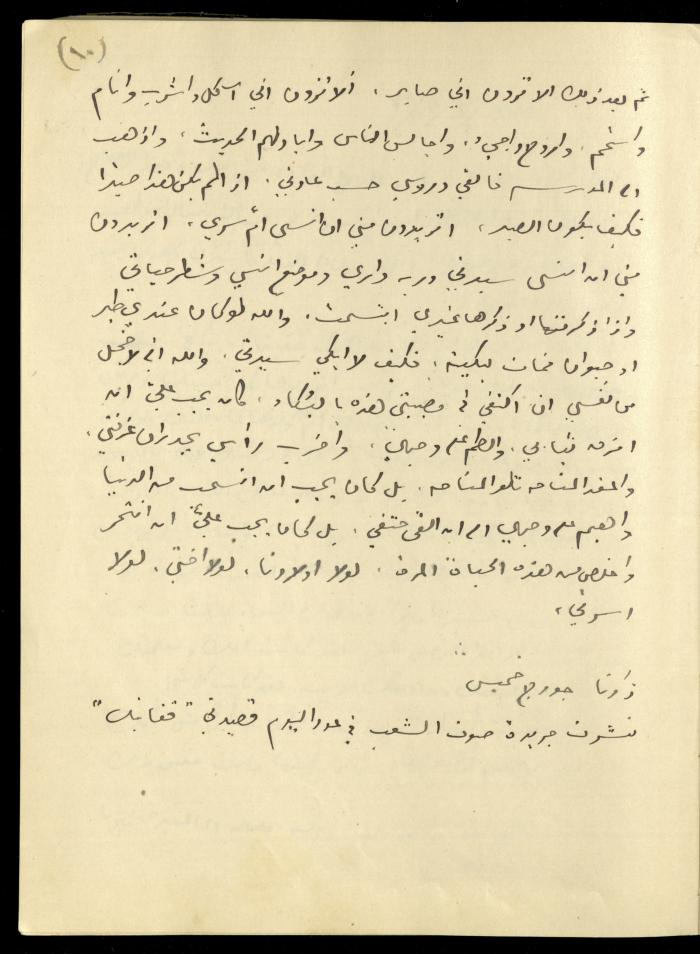 (٨٠)
ثم بعد ذلك الا ترون اني صابر، ألا ترون اني آكل واشرب وانام
واستحم، واروح واجيء، واجالس الناس وابادلهم الحديث، واذهب
الى المدرسة فألقي دروسي حسب عادتي. اذا لم يكن هذا صبرا
فكيف يكون الصبر، اتريدون مني ان انسى ام سري، اتريدون
مني ان انسى سيدتي وربة داري وموضع انسي وشطر حياتي
واذا ذكرتها او ذكرها غيري ابتسمت، والله لو كان عندي طير
او حيوان فمات لبكيته، فكيف لا ابكي سيدتي. والله اني لاخجل
من نفسي ان اكتفي في مصيبتي هذه بالبكاء، كان يجب عليّ ان
امزق ثيابي، والطم على وجهي، واضرب رأسي بجدران غرفتي،
واعقد المناحة تلو المناحة. بل كان يجب ان انسحب من الدنيا
واهيم على وجهي الى ان القى حتفي، بل كان يجب عليّ ان انتحر
واخلص من هذه الحياة المرة، لولا اولادنا، لولا اختي، لولا
اسرتي،
زارنا جورج خميس
نشرت جريدة صوت الشعب في عدد اليوم قصيدتي "قفا نبك"